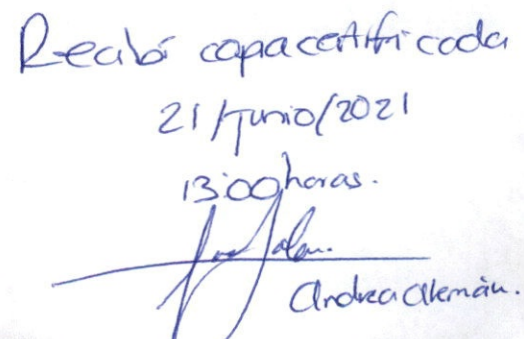 Recibí copia certificada
21/Junio/2021
13:00 horas.
Andrea Alemán.